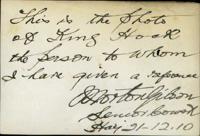 This is the Photo
of King Hoak
the person to whom
I have given a reference
Horton Gibson
May-21-12.10